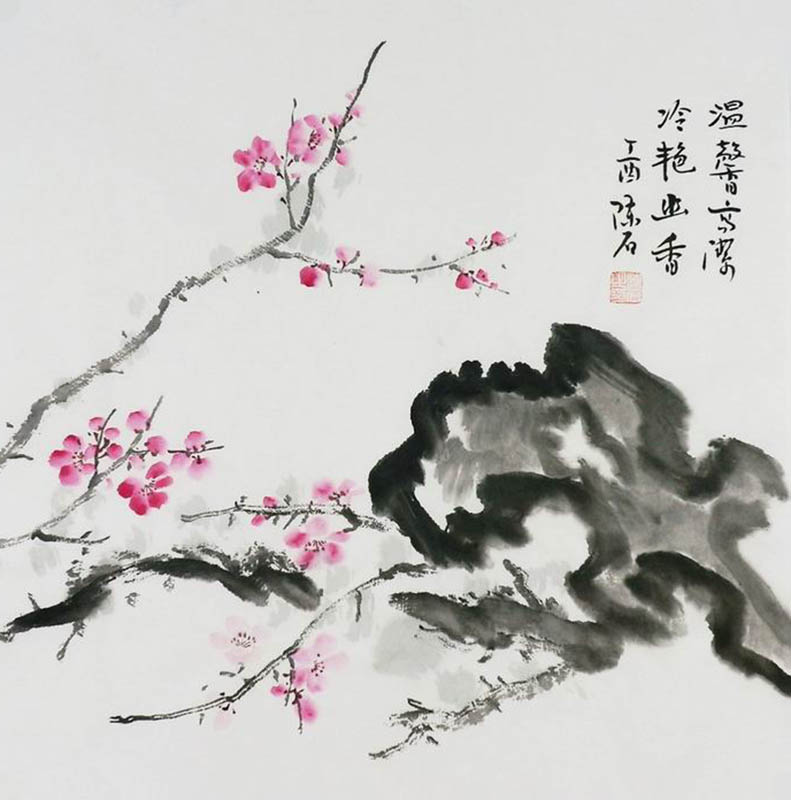 温馨高洁
冷艳幽香
丁酉陈石